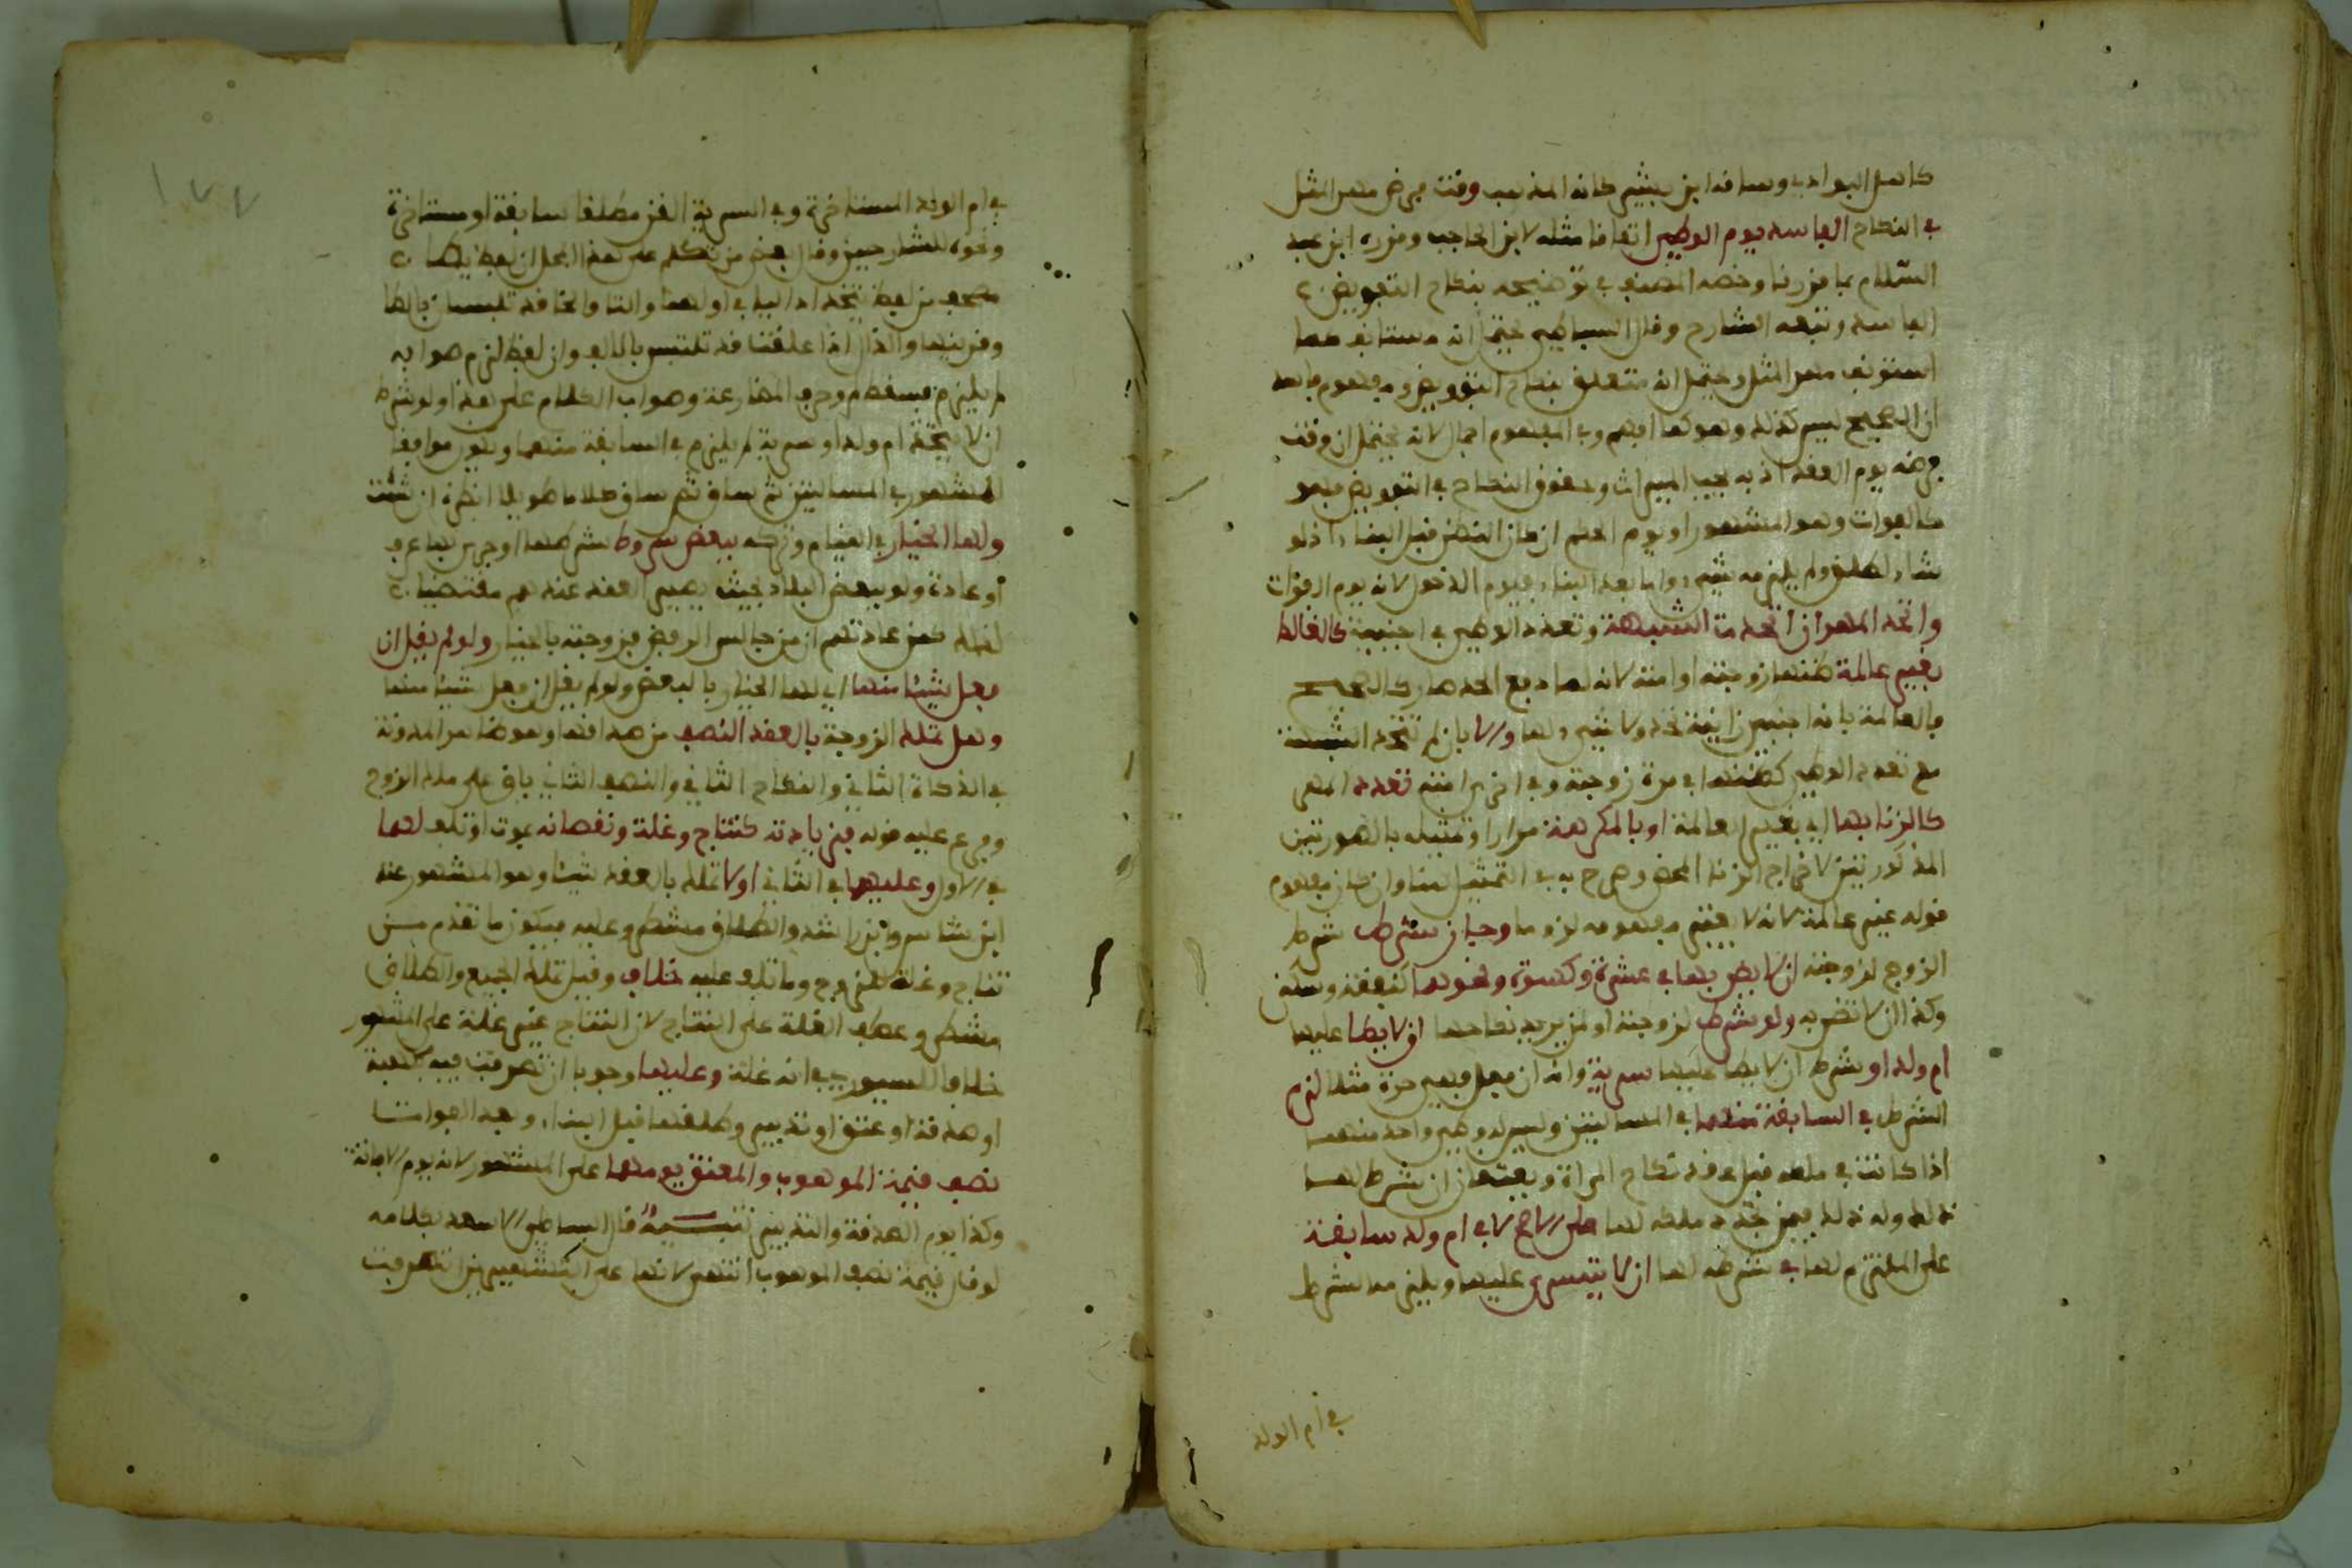 كاهل البوادي وساقه ابن بشير كانه المذهب وقت فرض مهر المثل
في النكاح الفاسد يوم الوطئ اتفاقا مثله لابن الحاجب وقرره ابن عبد
السلام بما قررنا وخصه المصنف في توضيحه بنكاح التفويض
الفاسد وتبعه الشارح وقال البساطي يحتمل ان مستانف
مهر المثل ويحتمل انه متعلق بنكاح التفويض ومفهوم فاسد
ان الصحيح ليس كذلك وهو كما افهم وفي المفهوم اجمال لانه يحتمل ان وقت
فرضه يوم العقد اذ به يجب الميراث وحقوق النكاح في التفويض فهو
كالفوات وهو المشهور او يوم الحكم ان كان النظر قبل البناء اذ لو
شاء لطلق ولم يلزمه شيء واما بعد البناء فيوم الدخول لانه يوم الفوات
واتحد المهر ان اتحدت الشبهة وتعدد الوطئ في اجنبية كالغالط
بغير عالمة ظنها زوجته او امته لانه
فالعالمة بانه اجنبي زانية تحد ولا شيء لها والا بان لم تتحد الشبهة
مع تعدد الوطئ كظنها في مرة زوجته وفي اخرى امته تعدد المهر
كالزنا بها اي بغير العالمة او بالمكرهة مرارا وتمثيله بالصورتين
المذكورتين لاخراج الزنا المحض وصرح به في التمثيل لهما وان كان مفهوم
قوله غير عالمة لانه لا يعتبر مفهومه لزوما وجاز شرط شرط
الزوج لزوجته ان لا يضر بها في عشرة وكسوة ونحوهما كنفقة وسكنى
وكذا ان لا تضر به ولو شرط لزوجته او لمن يريد نكاحها ان لا يطا عليها
ام ولد او شرط ان لا يطا عليها سرية وانه ان فعل فهي حرة مثلا لزم
الشرط في السابقة منهما في المسالتين وليس له وطئ واحدة منهما
اذا كانت في ملكه قبل عقد نكاح المراة
ذلك وله ذلك فيمن تجدد ملكه لها على الاصح لا في ام ولد سابقة
على الملتزم لها في شرطه لها ان لا يتسرى عليها ويلزمه الشرط
في ام الولد
١٧٧
في ام الولد المستاخرة وفي السرية القن مطلقا سابقة او مستاخرة
ونحوه للشارحين وقال بعض من تكلم على هذا المحل ان لفظ يطا
مصحف من لفظ يتخذ
وقرينها والذال اذا علقت قد تلتبس بالالف وان لفظ لزم صوابه
لم يلزم فسقط لم وحرف المضارعة وصواب الكلام على هذا ولو شرط
ان لا يتخذ ام ولد او سرية لم يلزم في السابقة منهما ويكون موافقا
للمشهور في المسالتين ثم ساق كلاما طويلا انظره ان شئت
ولها الخيار في القيام وتركه ببعض شروط شرطها او جرى بها عرف
او عادة ولو ببعض البلاد بحيث يصير العقد عندهم مقتضيا
لذلك كمن عادتهم ان من جالس الرفض فزوجته بالخيار ولو لم يقل ان
فعل شيئا منها اي لها الخيار بالبعض ولو لم يقل ان فعل شيئا منها
وهل تملك الزوجة بالعقد النصف من صداقها وهو ظاهر المدونة
في الزكاة الثاني والنكاح الثاني والنصف الثاني باق على ملك الزوج
وفرع عليه قوله فزيادته كنتاج وغلة ونقصانه بموت او تلف لهما
في الاول وعليهما في الثاني او لا تملك بالعقد شيئا وهو المشهور عند
ابن شاس وابن راشد والطلاق مشطر وعليه فيكون ما تقدم من
نتاج وغلة للزوج وما تلف عليه خلاف وقيل تملك الجميع والطلاق
مشطر وعطف الغلة على النتاج لان النتاج غير غلة على المشهور
خلافا للسيوري في انه غلة وعليها وجوبا ان تصرفت فيه بهبة
او صدقة او عتق او تدبير وطلقها قبل البناء وبعد الفوات
نصف قيمة الموهوب والمعتق يومهما على المشهور لانه يوم الافاتة
وكذا يوم الصدقة والتدبير تنبيه قال البساطي الاسعد بكلامه
لو قال قيمة نصف الموهوب انتهى لانها عند التشطير